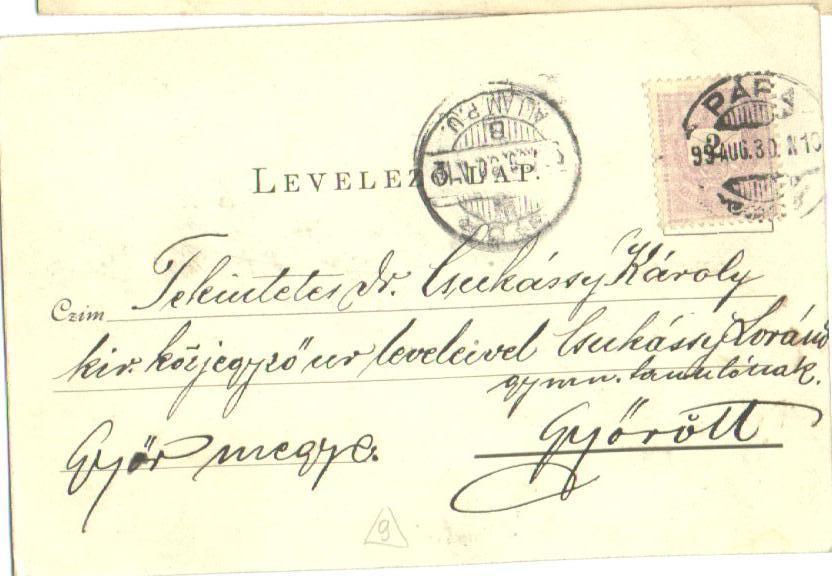 PÁPA
99 AUG. 30. N 10
2
ÁLLAM P.U.
B
LEVELEZŐ-LAP.
Czim Tekintetes dr. Csukássy Károly
kir. közjegyző ur leveleivel Csukássy Loránd
gymn. tanulónak.
Győr megye. Győrött
9